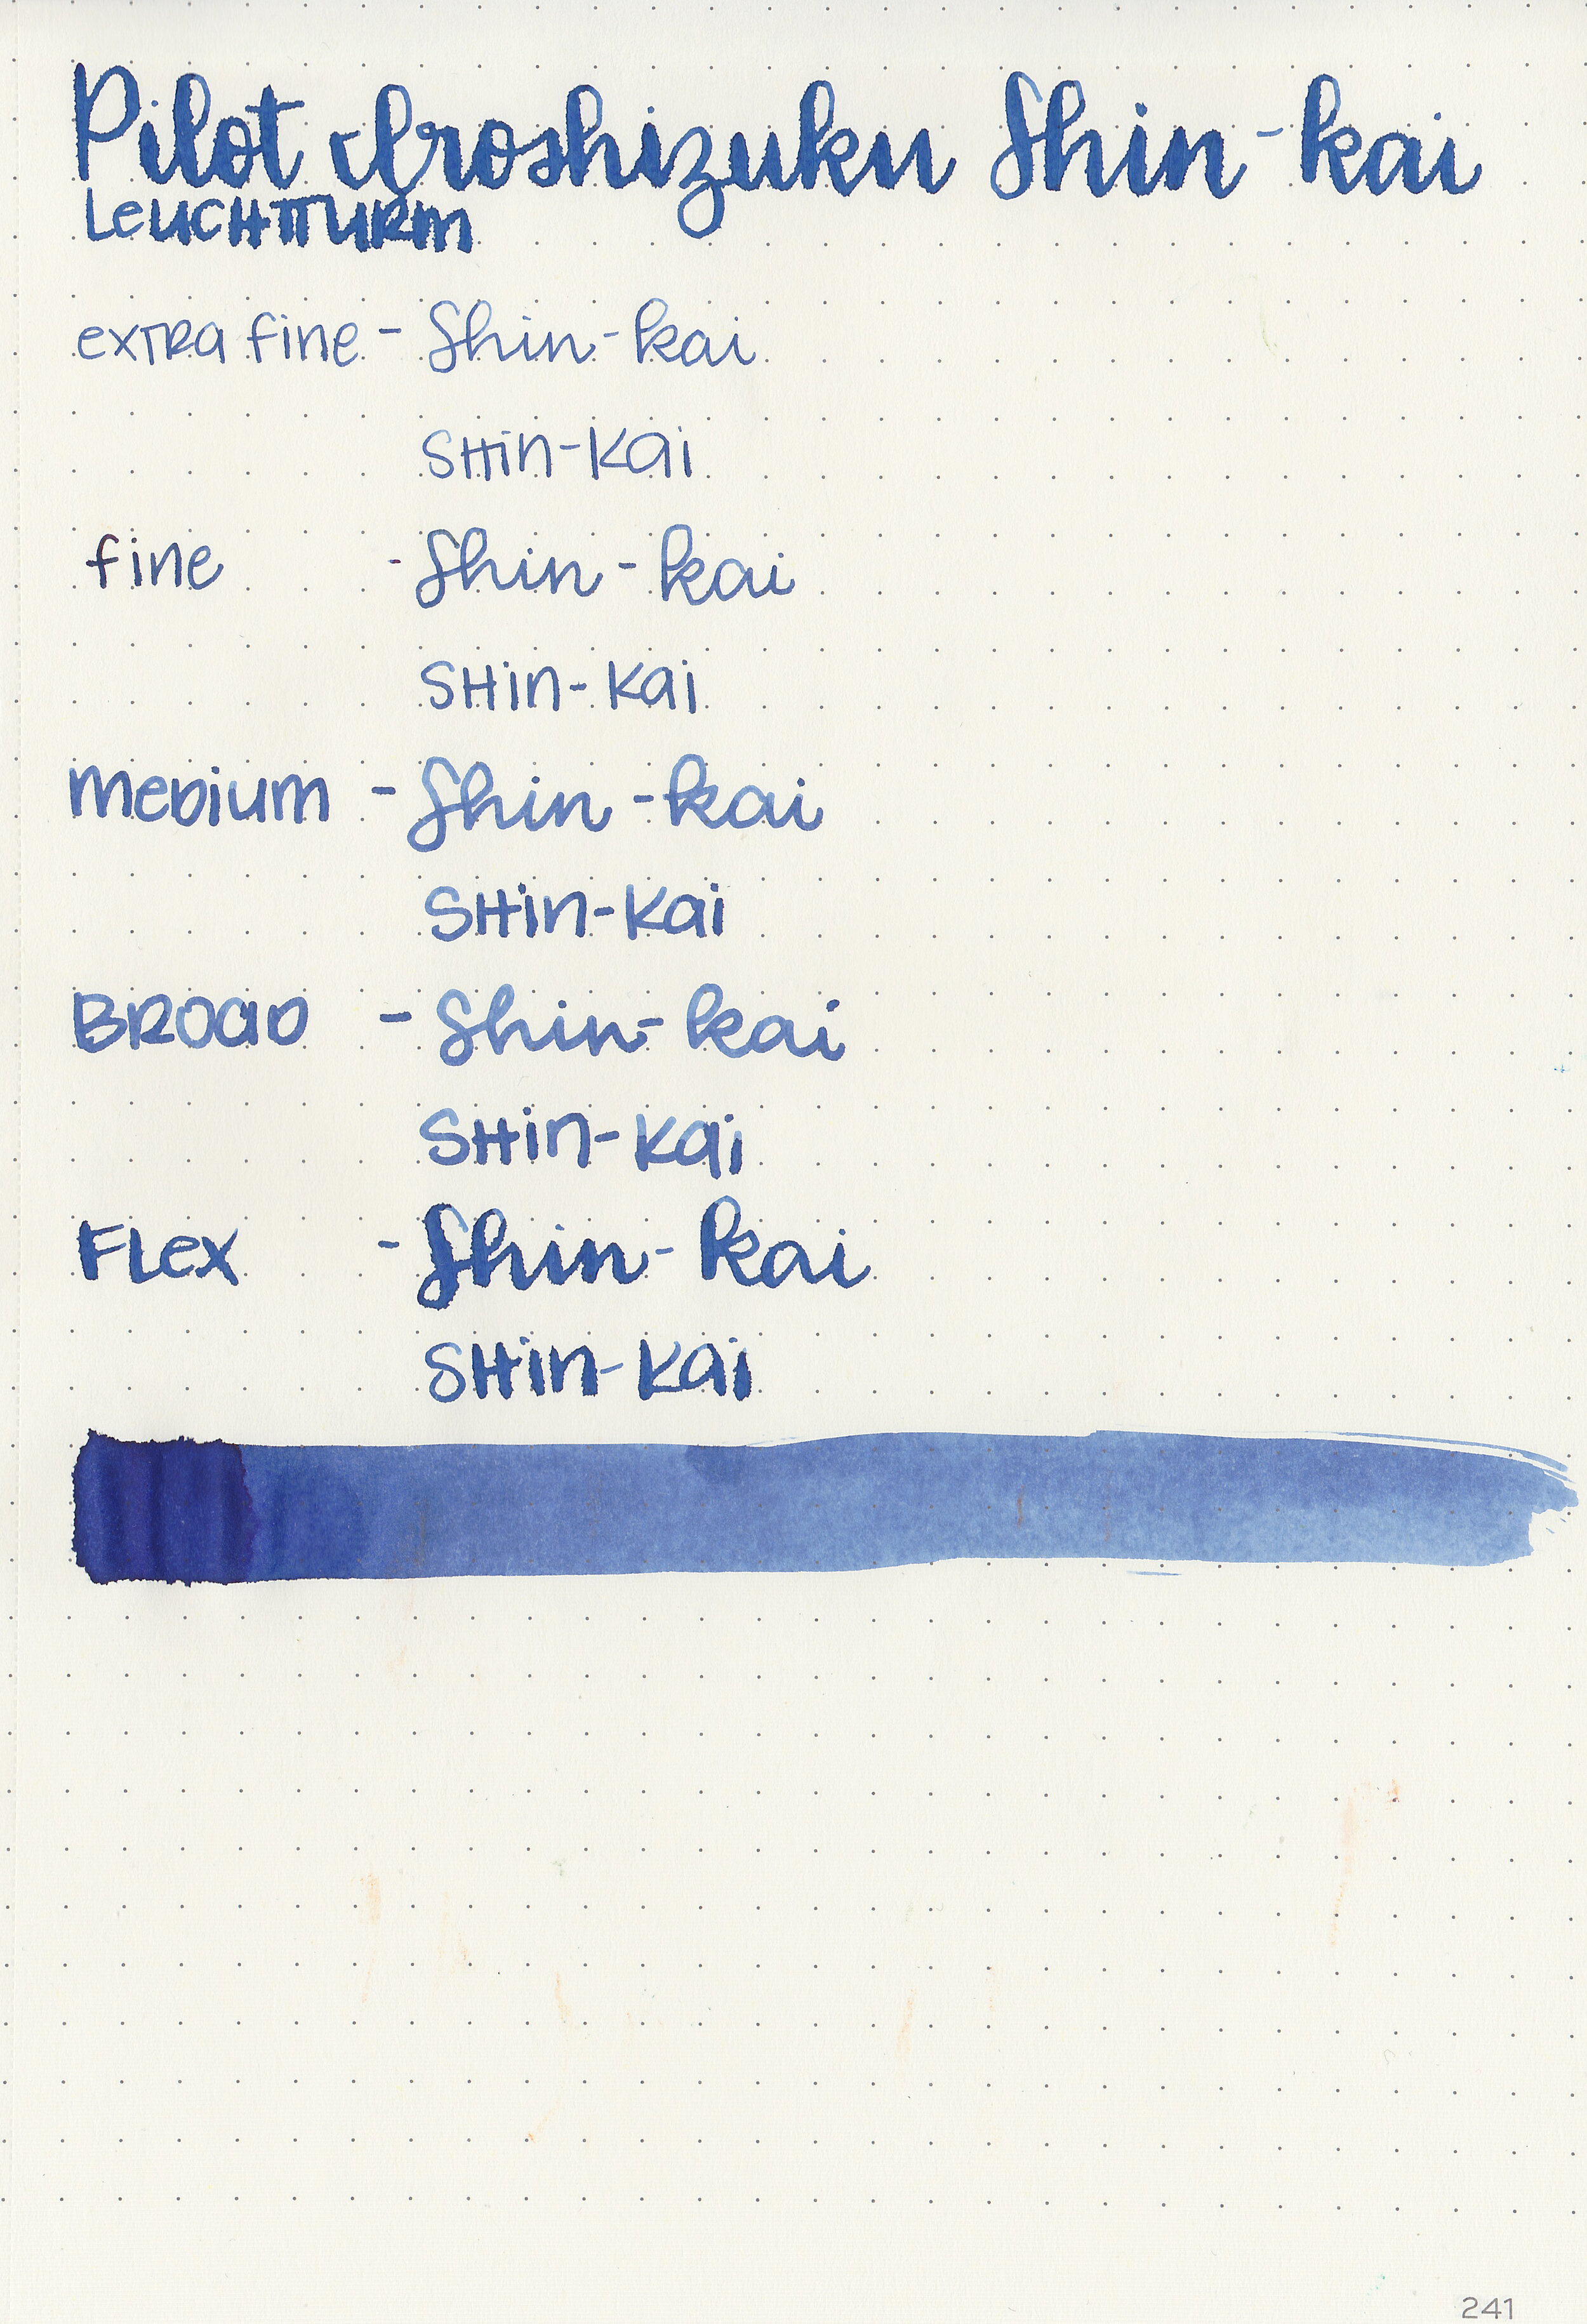 Pilot Iroshizuku Shin-kai
LEUCHTTURM
EXTRA fine - Shin-kai
SHin-Kai
fine - Shin-kai
SHin-Kai
MeDium - Shin-kai
SHin-Kai
BROAD - Shin-kai
SHin-Kai
FLex - Shin-kai
SHin-Kai
241